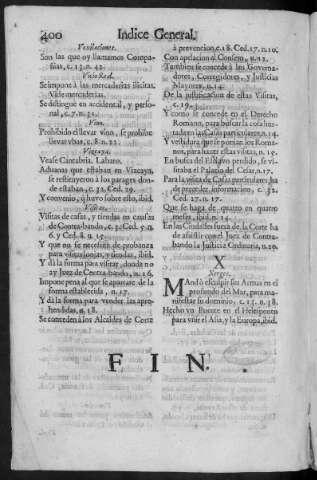 400 Indice General.
Vexillaciones.
Son las que oy llamamos Compa-
ñias, c. 15. n. 42.
Vicio Real.
Se impone à las mercaderias ilicitas.
Vide mercaderias.
Se distingue en accidental, y perso-
nal, c. 7. n. 32.
Vino.
Prohibido el llevar vino, se prohibe
llevar vbas, c. 8. n. 22.
Vizcaya.
Vease Cantabria. Labaro.
Aduanas que estaban en Vizcaya,
se restituyeron à los parages don-
de estaban, c. 32. Ced. 29.
Y convenio, q̃ huvo sobre ello, ibid.
Visitas.
Visitas de casas, y tiendas en causas
de Contra-bando, c. 32. Ced. 5. n.
6. y Ced. 8. n. 15.
Y que no se necessita de probanza
para visitar lonjas, y tiendas, ibid.
Y dà la forma para visitar, donde no
ay Juez de Contra-bando, n. 16.
Impone pena al que se apartare de la
forma establecida, n. 17.
Y dà la forma para vender las apre-
hendidas, n. 18.
Se conceden à los Alcaldes de Corte
à prevencion, c. 18. Ced. 17. n. 10.
Con apelacion al Consejo, n. 12.
Tambien se concede à los Governa-
dores, Corregidores, y Justicias
Mayores, n. 14.
De la justificacion de estas Visitas,
c. 19.
Y como se concede en el Derecho
Romano, para buscar la cosa hur-
tada en las Casas particulares, n. 14.
Y vestidura que se ponian los Roma-
nos, para hazer estas visitas, n. 15.
En busca del Esclavo perdido, se vi-
sitaba el Palacio del Cesar, n. 17.
Para la visita de Casas particulares, ha
de preceder informacion, c. 32.
Ced. 27. n. 17.
Que se haga de quatro en quatro
meses, ibid. n. 14.
En las Ciudades fuera de la Corte ha
de assistir con el Juez de Contra-
bando la Justicia Ordinaria, n. 20.
X
Xerges.
Mandò esculpir sus Armas en el
profundo del Mar, para ma-
nifestar su dominio, c. 15. n. 38.
Hecho vn Puente en el Helesponto
para vnir el Asia, y la Europa, ibid.
FIN.